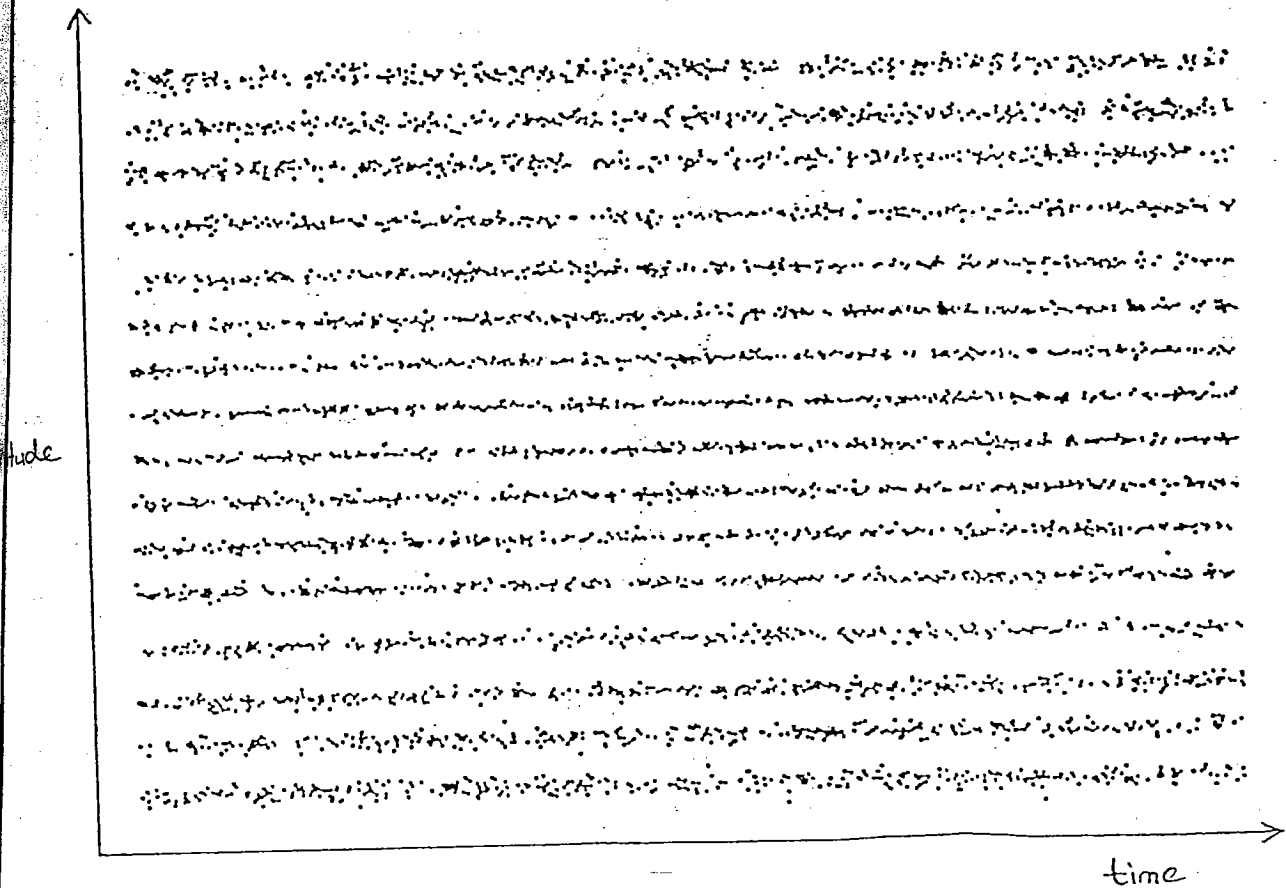 tude
time